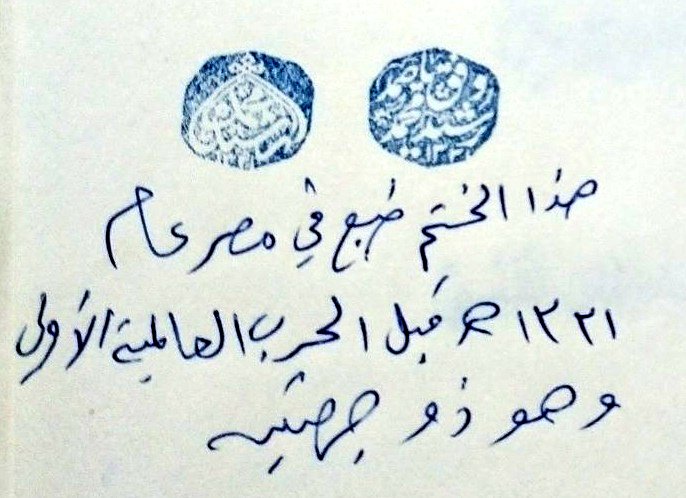 هذا الختم طبع في مصر عام
١٣٢١ هـ قبل الحرب العالمية الأولى
وهو ذو جهتين